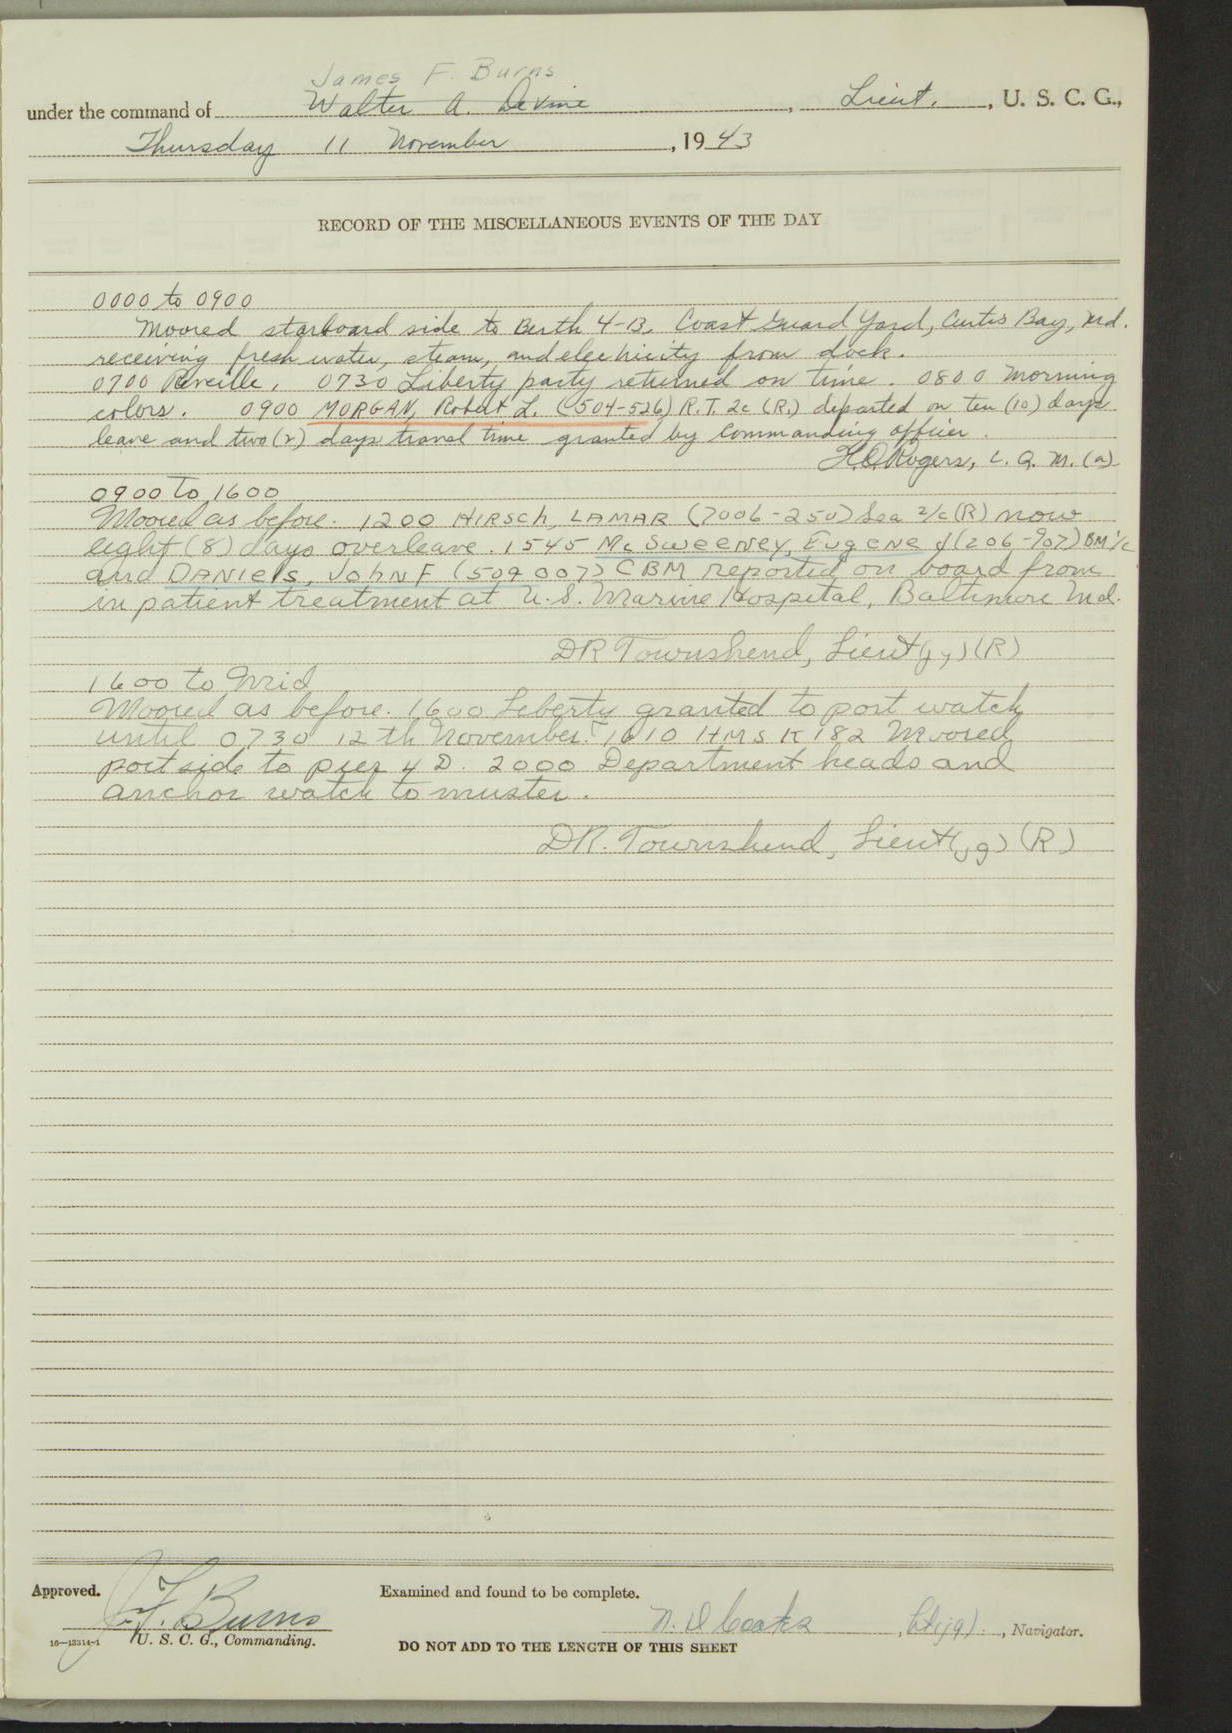 James F. Burns
under the command of Walter A. Devine, Lieut., U. S. C. G.,
Thursday 11 November, 1943
RECORD OF THE MISCELLANEOUS EVENTS OF THE DAY
0000 to 0900
Moored starboard side to Berth 4-B, Coast Guard Yard, Curtis Bay, Md.
receiving fresh water, steam, and electricity from dock.
0700 Reveille. 0730 Liberty party returned on time. 0800 Morning
colors. 0900 MORGAN, Robert L. (504-526) R.T. 2c (R.) departed on ten (10) days
leave and two (2) days travel time granted by Commanding officer.
H.O. Rogers, C. Q. M. (a)
0900 to 1600
Moored as before. 1200 HIRSch, LAMAR (7006-250) Sea 2/c (R) now
eight (8) days overleave. 1545 McSweeney, Eugene J (206-907) BM 1/c
and DANIEls, John F (509 007) CBM reported on board from
in patient treatment at U. S. Marine Hospital, Baltimore Md.
DR Townshend, Lieut (jg) (R)
1600 to Mid
Moored as before. 1600 Liberty granted to port watch
until 0730 12th November. 1610 HMS K182 Moored
port side to pier 4 D. 2000 Department heads and
anchor watch to muster.
DR. Townshend, Lieut (jg) (R)
Approved.
J. F. Burns
16—13314-1 U. S. C. G., Commanding.
Examined and found to be complete.
N. D Coats, Lt (jg)., Navigator.
DO NOT ADD TO THE LENGTH OF THIS SHEET